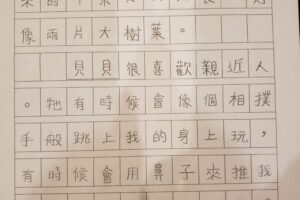 像兩片大樹葉。
貝貝很喜歡親近人
。牠有時候會像個相撲
手般跳上我的身上玩，
有時候會用鼻子來推我